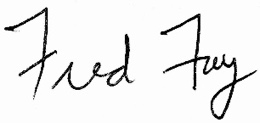 Fred Fay